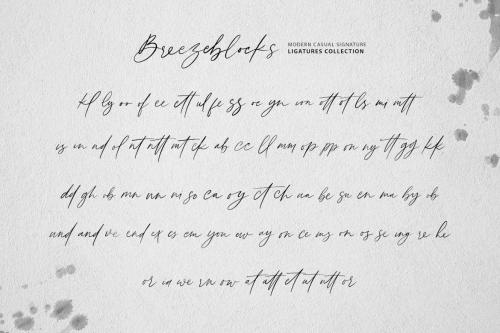 Breezeblocks
MODERN CASUAL SIGNATURE
LIGATURES COLLECTION
kl ly oo of ee ett ul fe ss oe yn von ott ot ls mi mtt
is in nd ol nt ntt mt ck ab cc ll mm op pp on ny tt gg kk
dd gh ob mn nn ni so ca oy ct ch ua be su en ma by ob
und and ve end ex es em you ow ay on ce ms on os se ing re he
or ia we rn ow at att et ut utt or